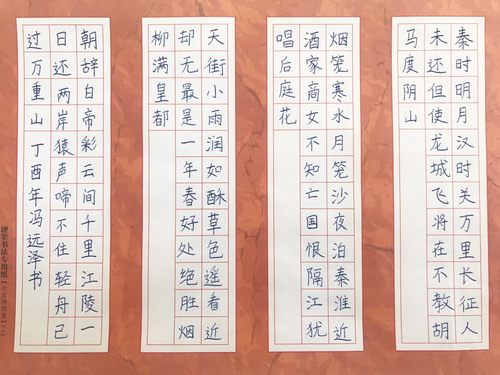 秦时明月汉时关万里长征人
未还但使龙城飞将在不教胡
马度阴山
烟笼寒水月笼沙夜泊秦淮近
酒家商女不知亡国恨隔江犹
唱后庭花
天街小雨润如酥草色遥看近
却无最是一年春好处绝胜烟
柳满皇都
朝辞白帝彩云间千里江陵一
日还两岸猿声啼不住轻舟已
过万重山 丁酉年冯远泽书
硬笔书法专用纸